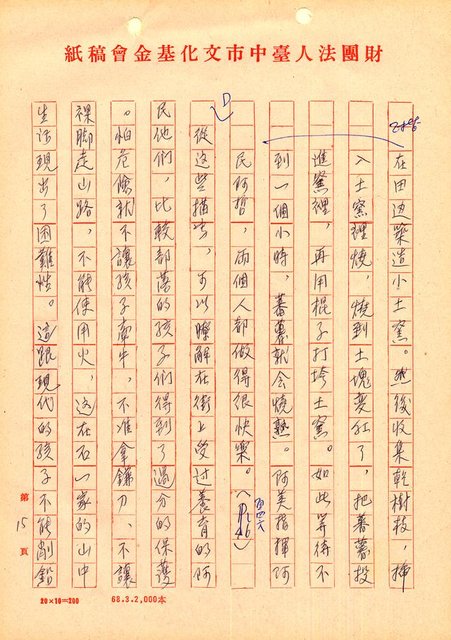 財團法人臺中市文化基金會稿紙
在田边築造小土窯。然後收集乾樹枝，揷
入土窯裡燒，燒到土塊变红了，把蕃薯投
進窯裡，再用棍子打垮土窯。如此等待不
到一個小時，蕃薯就会燒熟。阿美指揮阿
民阿哲，兩個人都做得很快樂。
從這些描寫，可以瞭解在街上受过養育的阿
民他們，比較部落的孩子們得到了過分的保護
。怕危險就不讓孩子牽牛，不准拿鐮刀、不讓
裸脚走山路，不能使用火，這在石一家的山中
生活現出了困難性。這跟現代的孩子不能削鉛
第15頁
20×10=200
68.3.2,000本